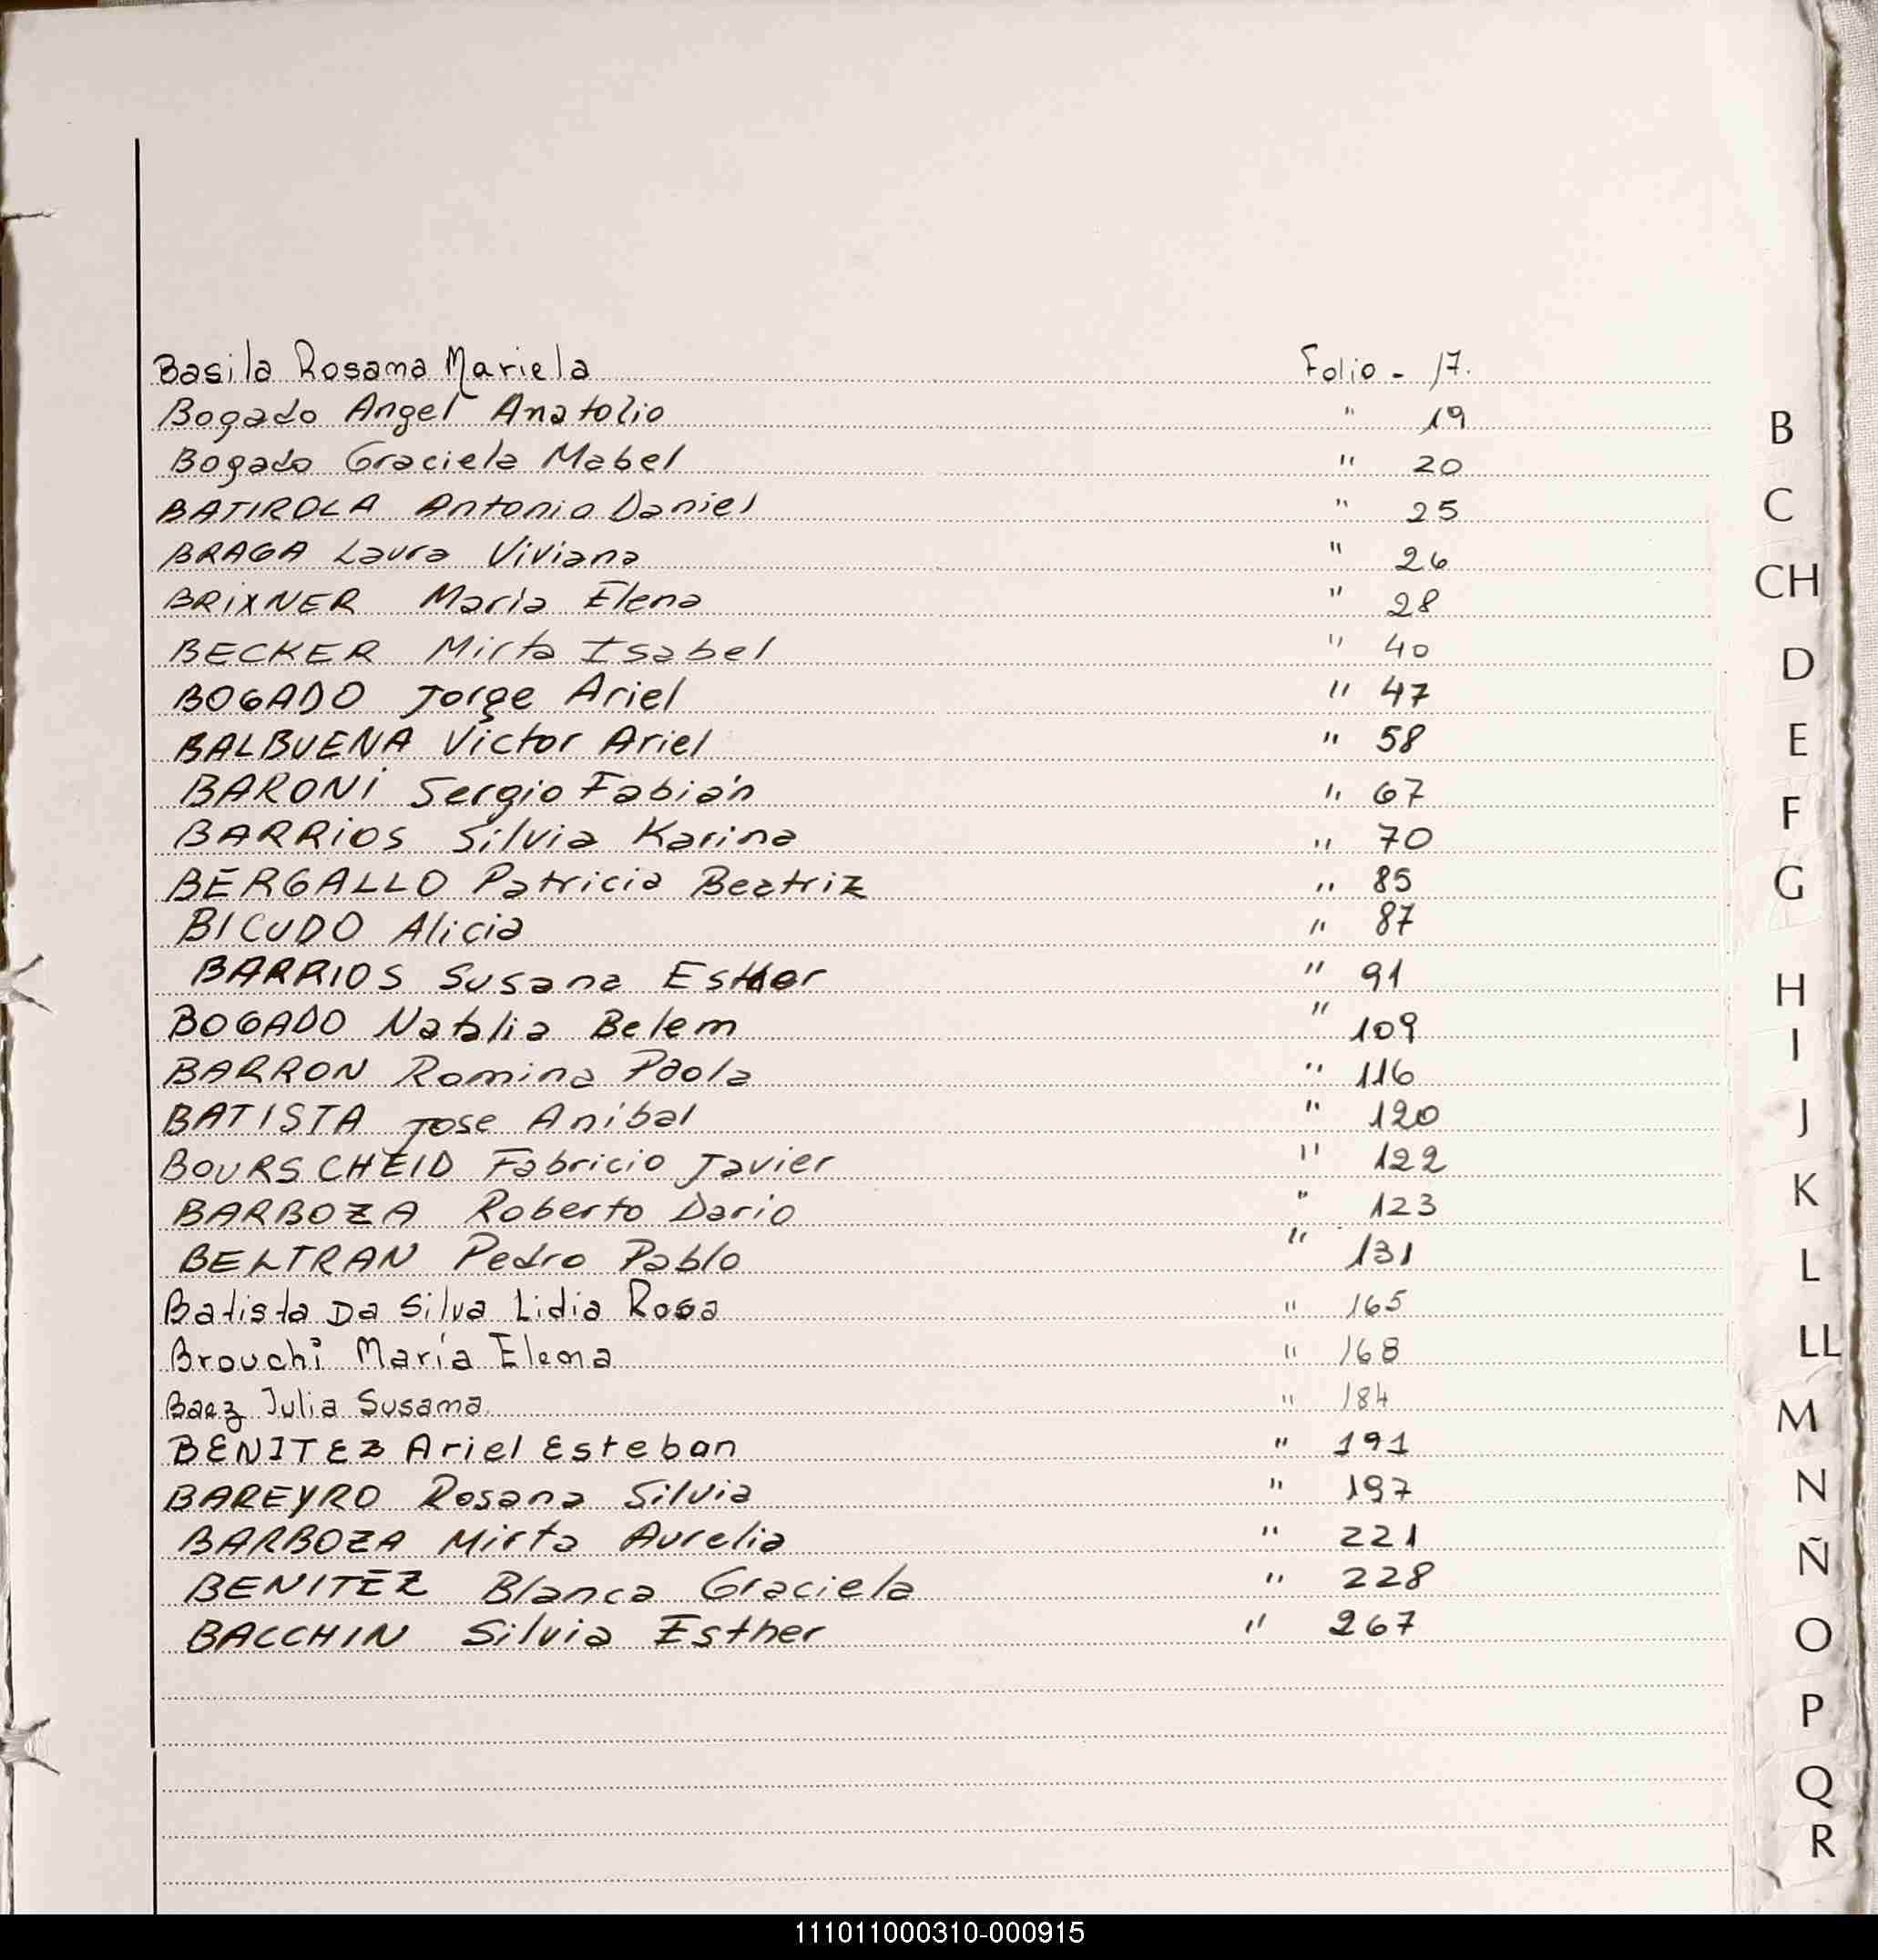 Basila Rosana Mariela Folio - 17.
Bogado Angel Anatolio " 19
Bogado Graciela Mabel " 20
BATIROLA Antonio Daniel " 25
BRAGA Laura Viviana " 26
BRIXNER Maria Elena " 28
BECKER Mirta Isabel " 40
BOGADO Jorge Ariel " 47
BALBUENA Victor Ariel " 58
BARONI Sergio Fabián " 67
BARRIOS Silvia Karina " 70
BERGALLO Patricia Beatriz " 85
BICUDO Alicia " 87
BARRIOS Susana Esther " 91
BOGADO Natalia Belem " 109
BARRON Romina Paola " 116
BATISTA Jose Anibal " 120
BOURSCHEID Fabricio Javier " 122
BARBOZA Roberto Dario " 123
BELTRAN Pedro Pablo " 131
Batista Da Silva Lidia Rosa " 165
Brouchi María Elena " 168
Baez Julia Susana " 184
BENITEZ Ariel Esteban " 191
BAREYRO Rosana Silvia " 197
BARBOZA Mirta Aurelia " 221
BENITEZ Blanca Graciela " 228
BACCHIN Silvia Esther " 267
B
C
CH
D
E
F
G
H
I
J
K
L
LL
M
N
Ñ
O
P
Q
R
111011000310-000915